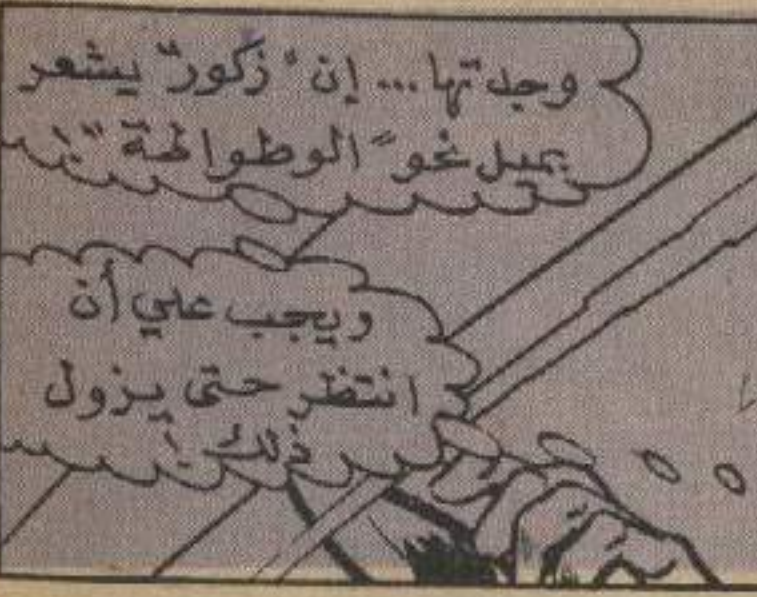 وجدتها... إن "زكور" يشعر
بميل نحو "الوطواطة"!
ويجب علي أن
انتظر حتى يزول
ذلك!